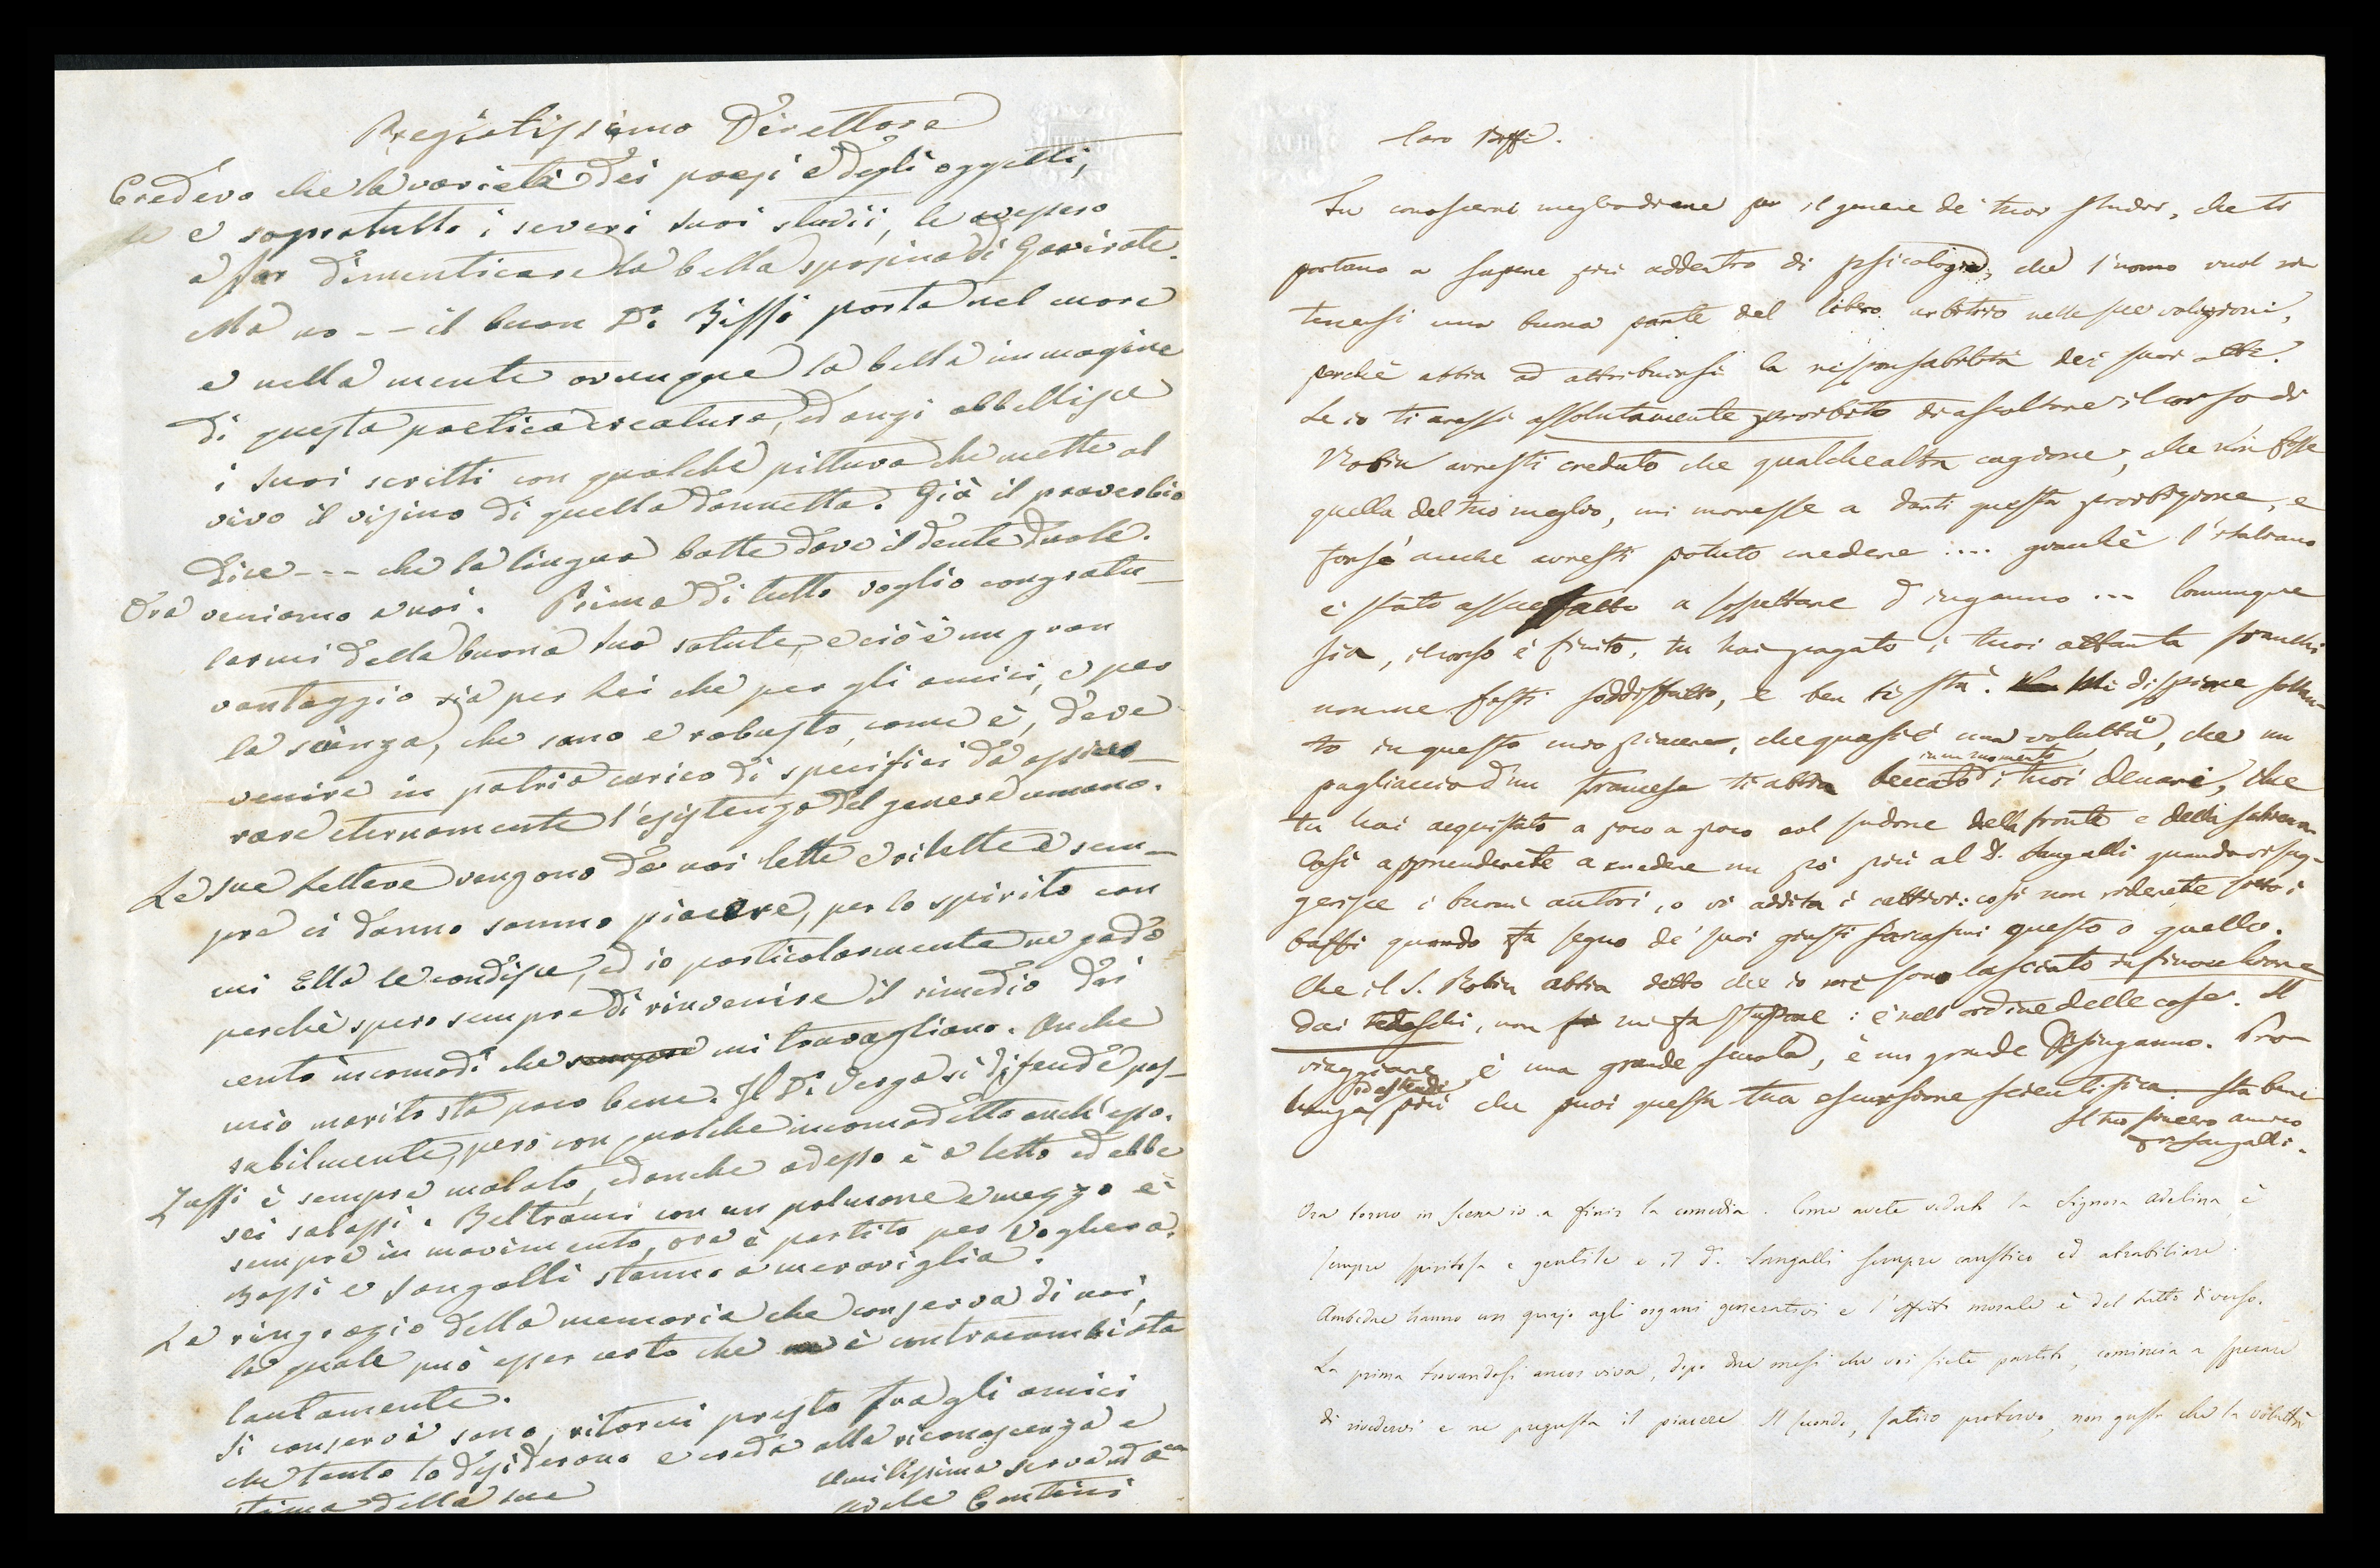 Pregiatissimo Direttore
Credevo che la varietà dei paesi e degli oggetti,
e sopratutto i severi suoi studii, le avessero
a far dimenticare la bella sposina di Gavirate.
Ma no -- il buon Dr. Biffi porta nel cuore
e nella mente ovunque la bella immagine
di questa poetica creatura, ed anzi abbellisce
i suoi scritti con qualche pittura che mette al
vivo il visino di quella donnetta. Già il proverbio
dice --- che la lingua batte dove il dente duole.
Ora veniamo a noi. Prima di tutto voglio congratu-
larmi della buona sua salute, e ciò è un gran
vantaggio sia per Lei che per gli amici, e per
la scienza, che sano e robusto, come è, deve
venire in patria carico di specifici da assicu-
rare eternamente l'esistenza del genere umano.
Le sue lettere vengono da noi lette e rilette e sem-
pre ci danno sommo piacere, per lo spirito con
cui Ella le condisce, ed io particolarmente ne godo
perché spero sempre di rinvenire il rimedio dei
cento incomodi che mi travagliano. Anche
mio marito sta poco bene. Il Dr. Verga si difende pas-
sabilmente, però con qualche incomodetto anch'esso.
Zuffi è sempre malato, ed anche adesso è a letto ed ebbe
sei salassi. Beltrami con un polmone e mezzo è
sempre in movimento, ora è partito per Voghera.
Bossi e Sangalli stanno a meraviglia.
La ringrazio della memoria che conserva di noi,
la quale può esser certo che è contracambiata
tantamente.
Si conservi sano, ritorni presto fra gli amici
che tanto lo desiderano e creda alla riconoscenza e
stima della sua umilissima serva ed
Adele Contini
Caro Biffi.
Tu conoscerai meglio di me per il genere de' tuoi studii, che ti
portano a sapere più addentro di psicologia, che l'uomo vuol ri-
tenersi una buona parte del libero arbitrio nelle sue volizioni,
perchè abbia ad attribuirsi la responsabilità dei suoi atti.
Se io ti avessi assolutamente proibito di ascoltare il corso di
Robin avresti creduto che qualche altra cagione, che non fosse
quella del tuo meglio, mi movesse a darti questa proibizione, e
forse anche avresti potuto credere .... giacchè l'italiano
è stato assuefatto a sospettare d'inganno ... Comunque
sia, il corso è finito, tu hai pagato i tuoi ottanta franchi
non ne fosti soddisfatto, e ben ti stà. Mi dispiace soltan-
to in questo mio piacere, che quasi è una voluttà, che un
pagliaccio d'un francese ti abbia beccato in un momento i tuoi denari, che
tu hai acquistato a poco a poco col sudore della fronte e della schiena.
Così apprenderete a credere un pò più al D. Sangalli quando vi sug-
gerisce i buoni autori, o vi addita i cattivi: così non riderete sotto i
baffi quando fa segno de' suoi giusti sarcasmi questo o quello.
Che il S. Robin abbia detto che io mi sono lasciato infinocchiare
dai tedeschi, non mi fa stupore: è nell'ordine delle cose. Il
viaggiare è una grande scuola, è un grande disinganno. Pro-
lunga ed estendi più che puoi questa tua escursione scientifica. Sta bene
Il tuo sincero amico
Sangalli.
Ora torno in scena io a finir la comedia. Come avete veduto la Signora Adelina è
sempre spiritosa e gentile e il d. Sangalli sempre caustico ed atrabiliare.
Ambedue hanno un guajo agli organi generativi e l'effetto morale è del tutto diverso.
La prima trovandosi ancor viva, dopo due mesi che voi siete partito, comincia a sperare
di rivedervi e ne pregusta il piacere. Il secondo, satiro protervo, non gusta che la voluttà